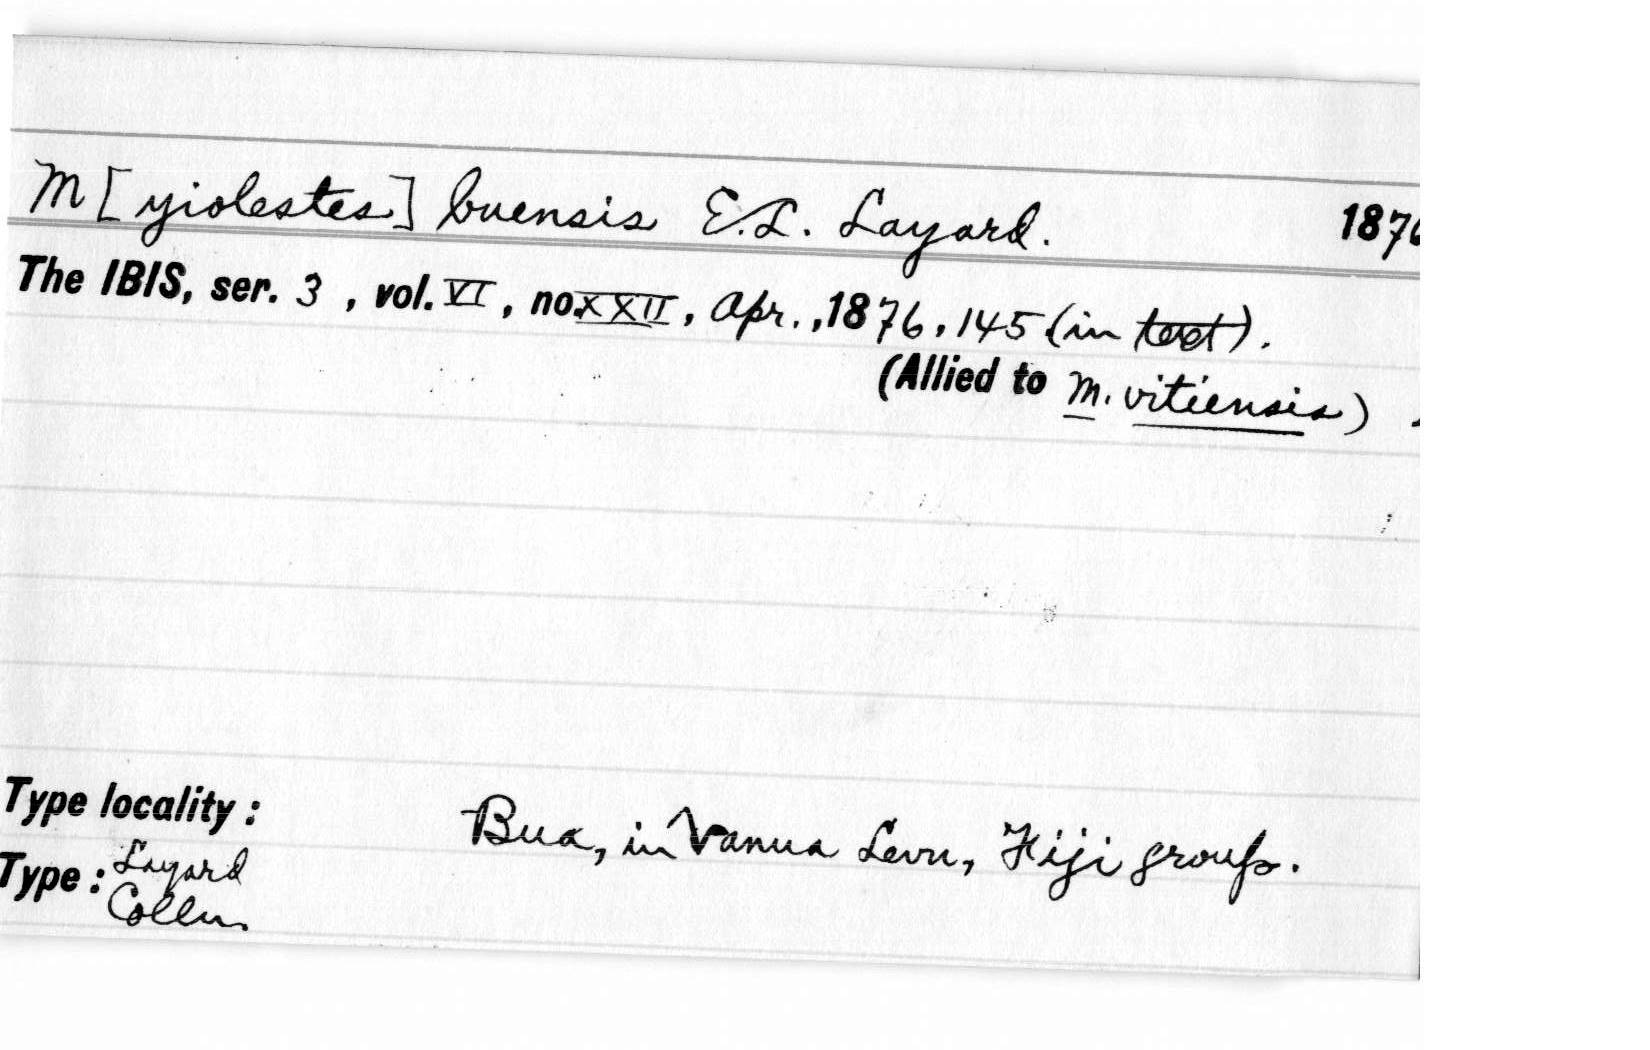 M[yiolestes] buensis E.L. Layard. 187
The IBIS, ser. 3 , vol. VI , no. XXII , Apr. , 1876 , 145 (in text).
(Allied to M. vitiensis)
Type locality : Bua, in Vanua Levu, Fiji group.
Type : Layard
Colln.